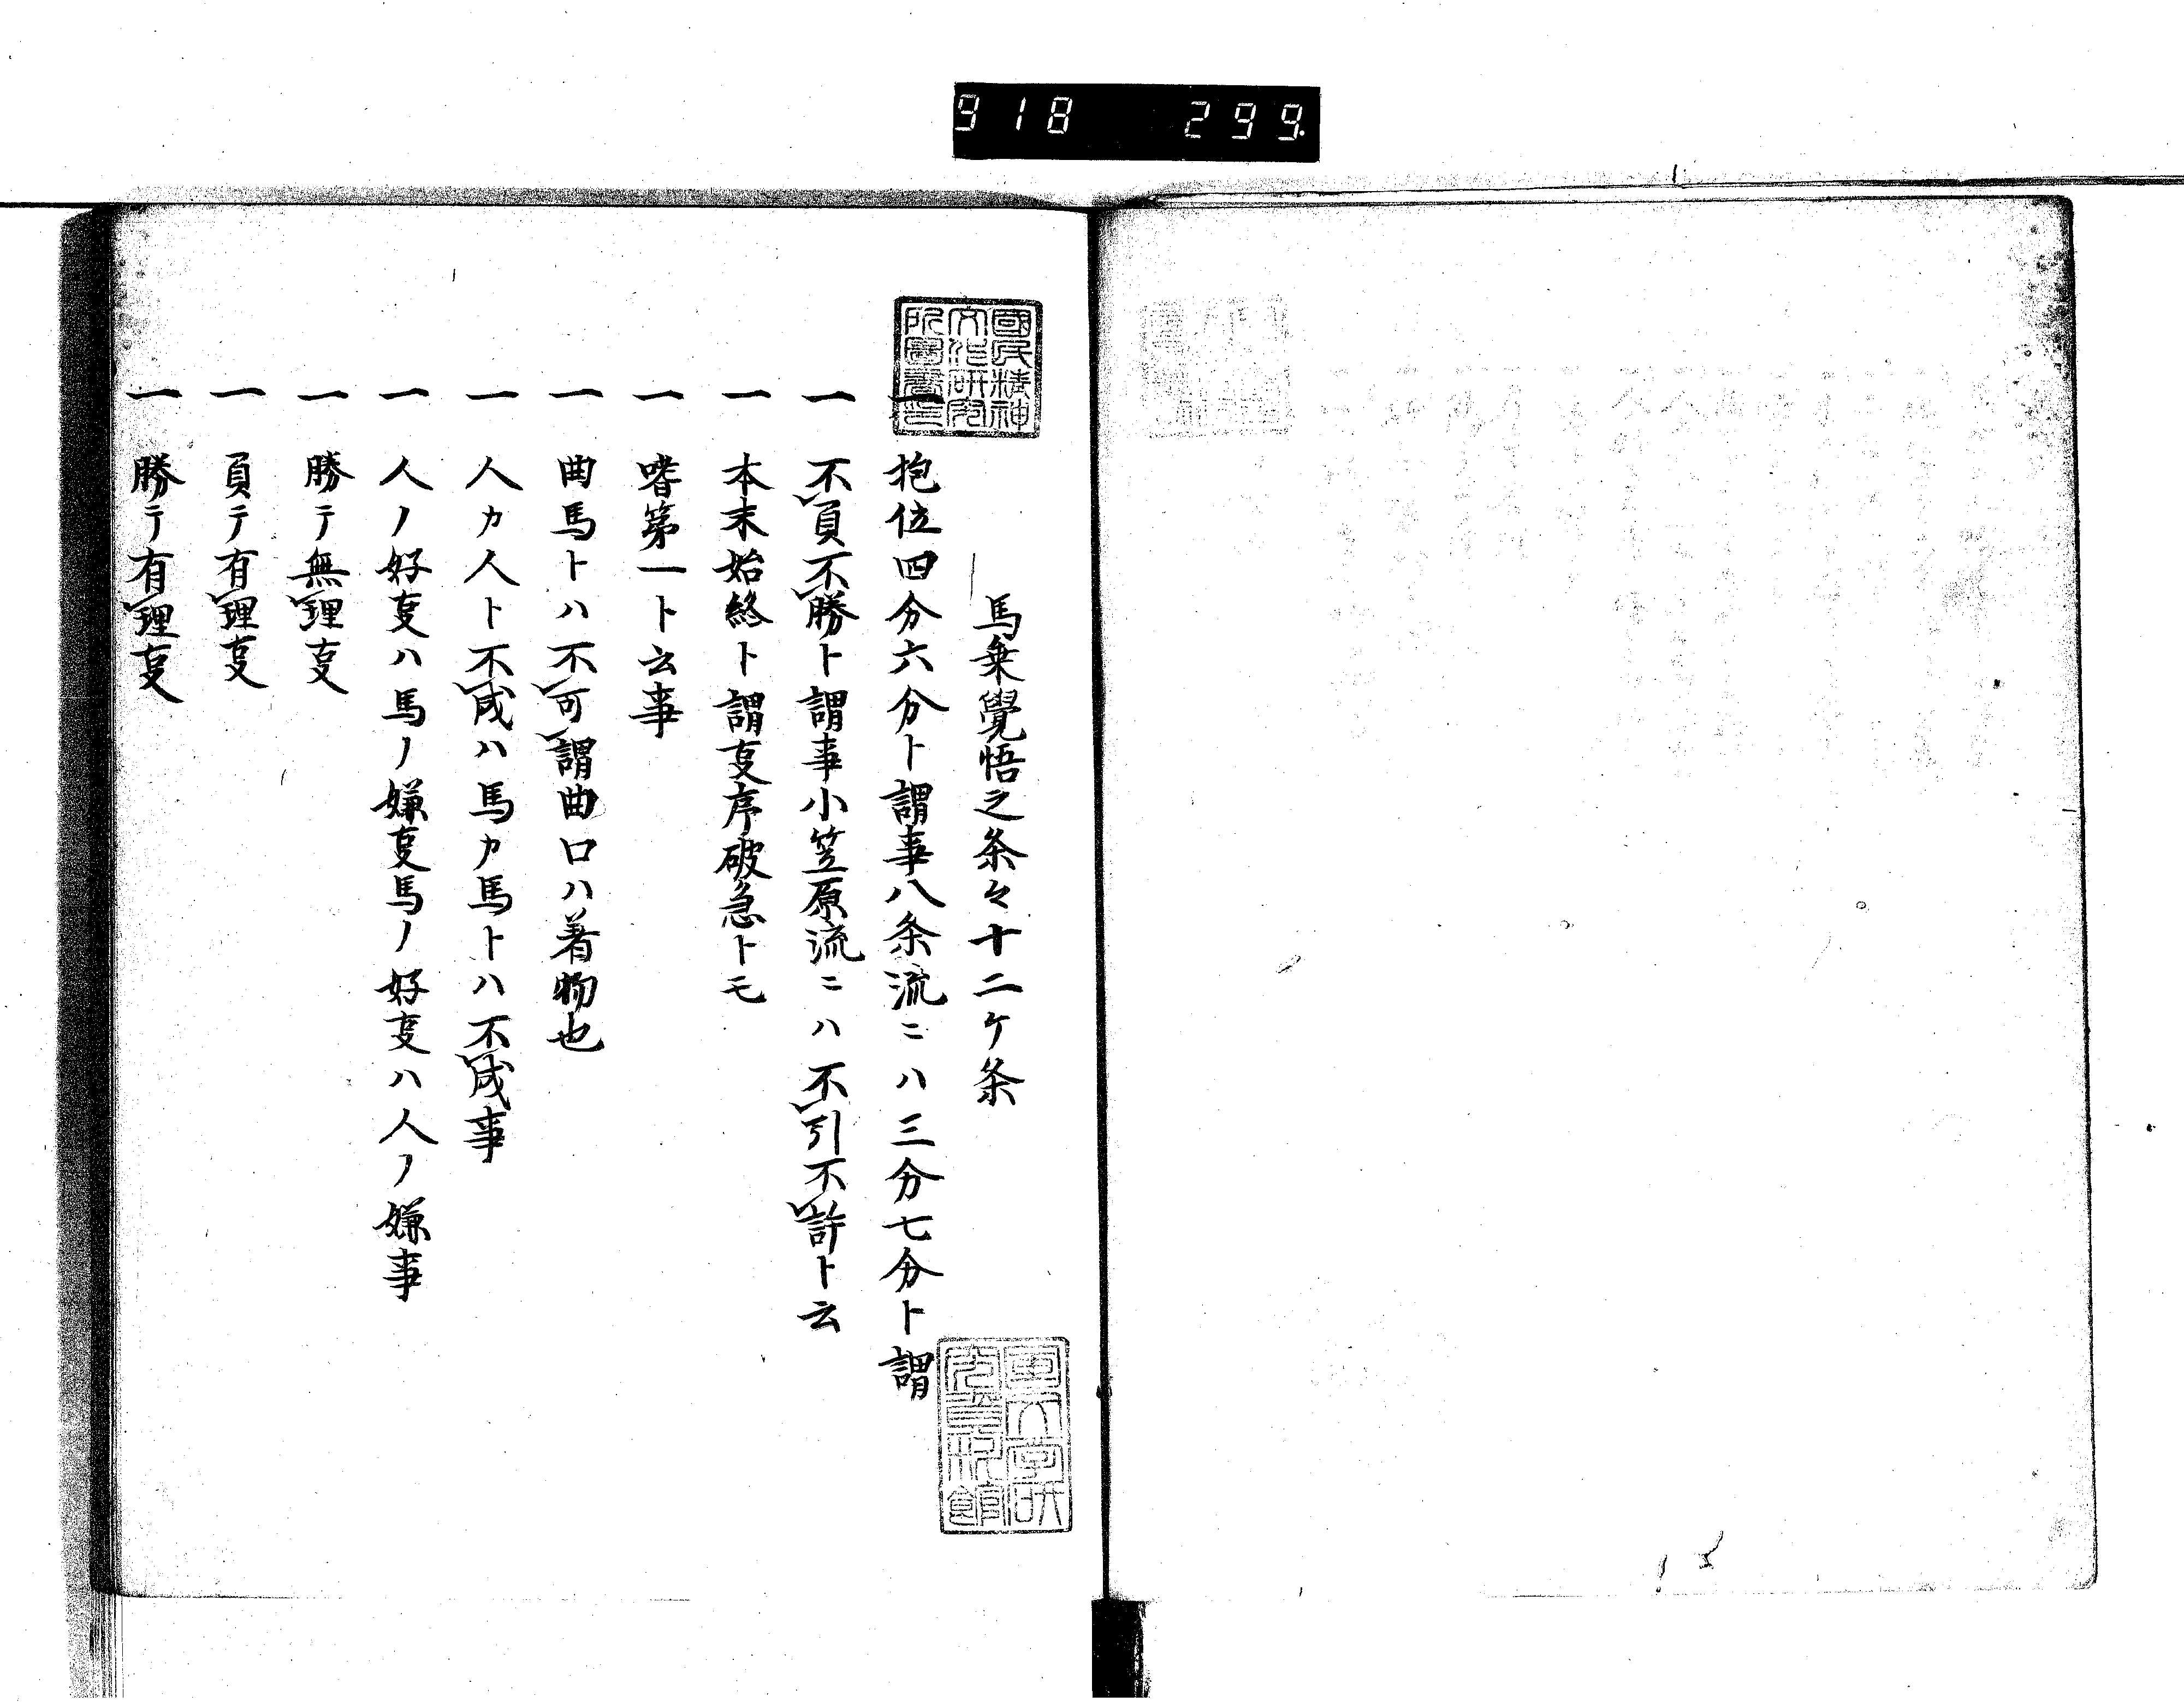 918 299.
國民精神
文化研究
所圖書印
馬乗覺悟之条々十二ケ条
一 抱位四分六分ト謂事八条流ニハ三分七分ト謂
一 不負不勝ト謂事小笠原流ニハ不引不許ト云
一 本末始終ト謂叓序破急トモ
一 嗜第一ト云事
一 曲馬トハ不可謂曲口ハ著物也
一 人カ人ト不成ハ馬カ馬トハ不成事
一 人ノ好叓ハ馬ノ嫌叓馬ノ好叓ハ人ノ嫌事
一 勝テ無理叓
一 負テ有理叓
一 勝テ有理叓